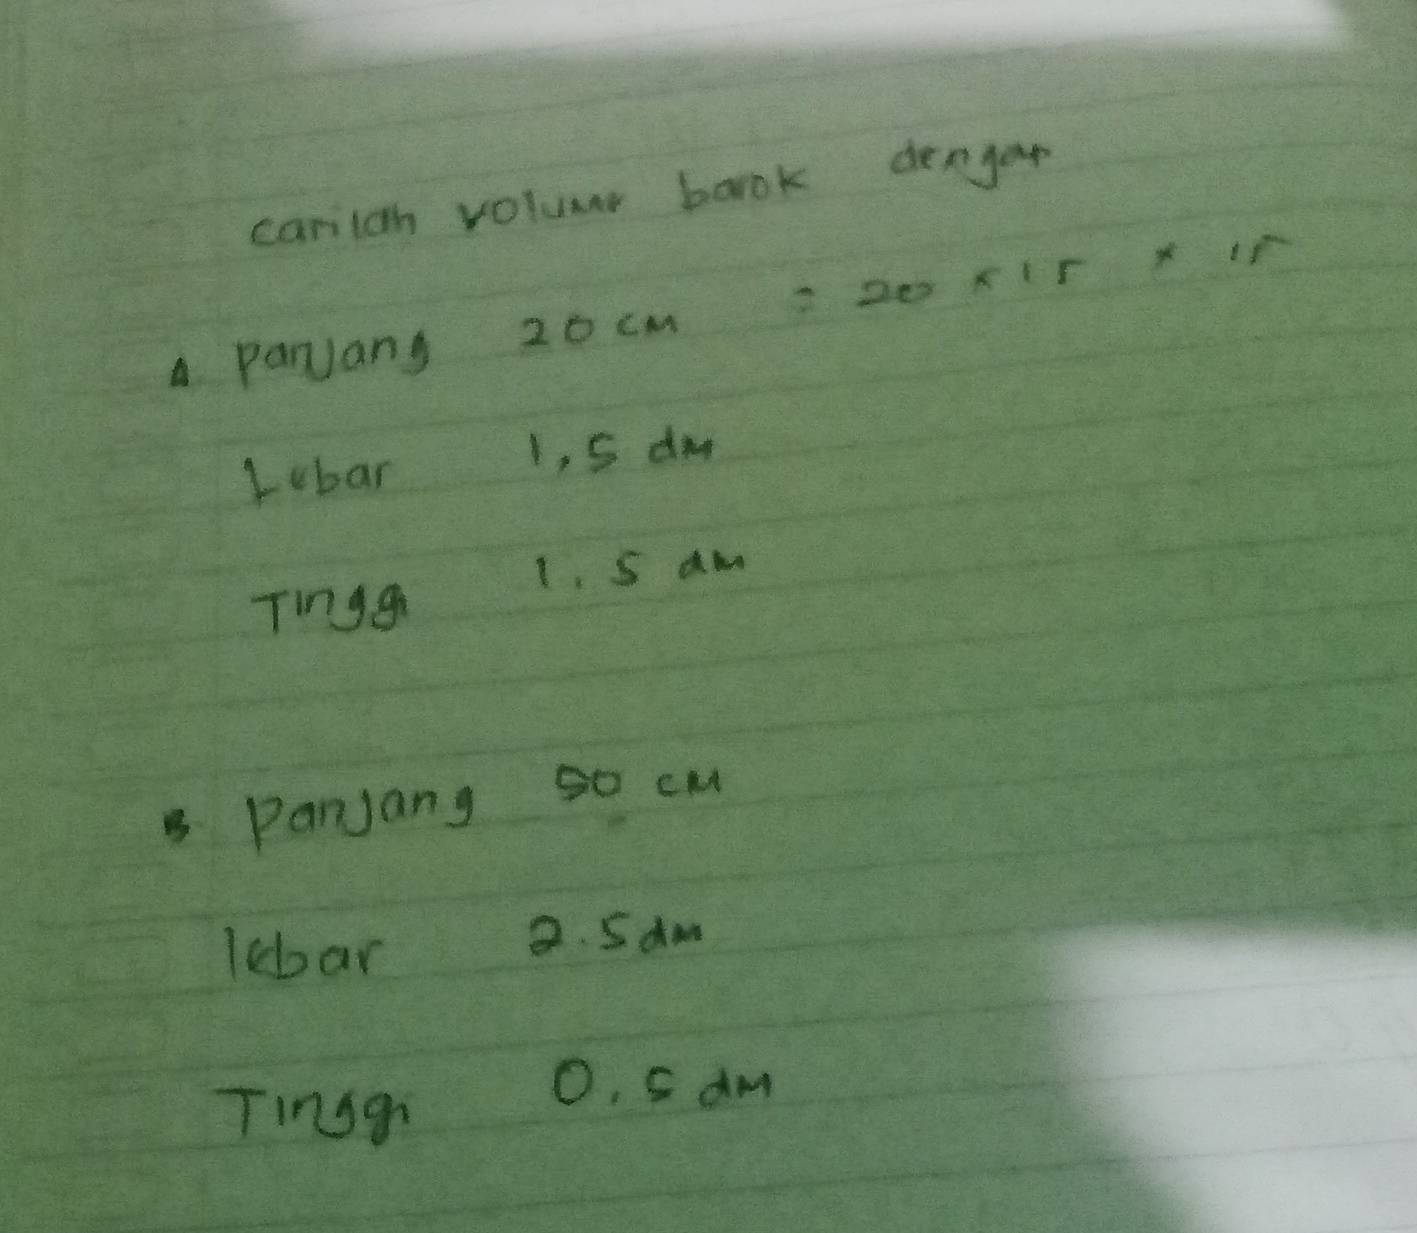 carilah volume barok dengan
A Panjang 20 cm = 20 x 15 x 15
Lebar 1,5 dm
Tinggi 1.5 dm
B Panjang 50 cm
lebar 2.5 dm
Tinggi 0.5 dm